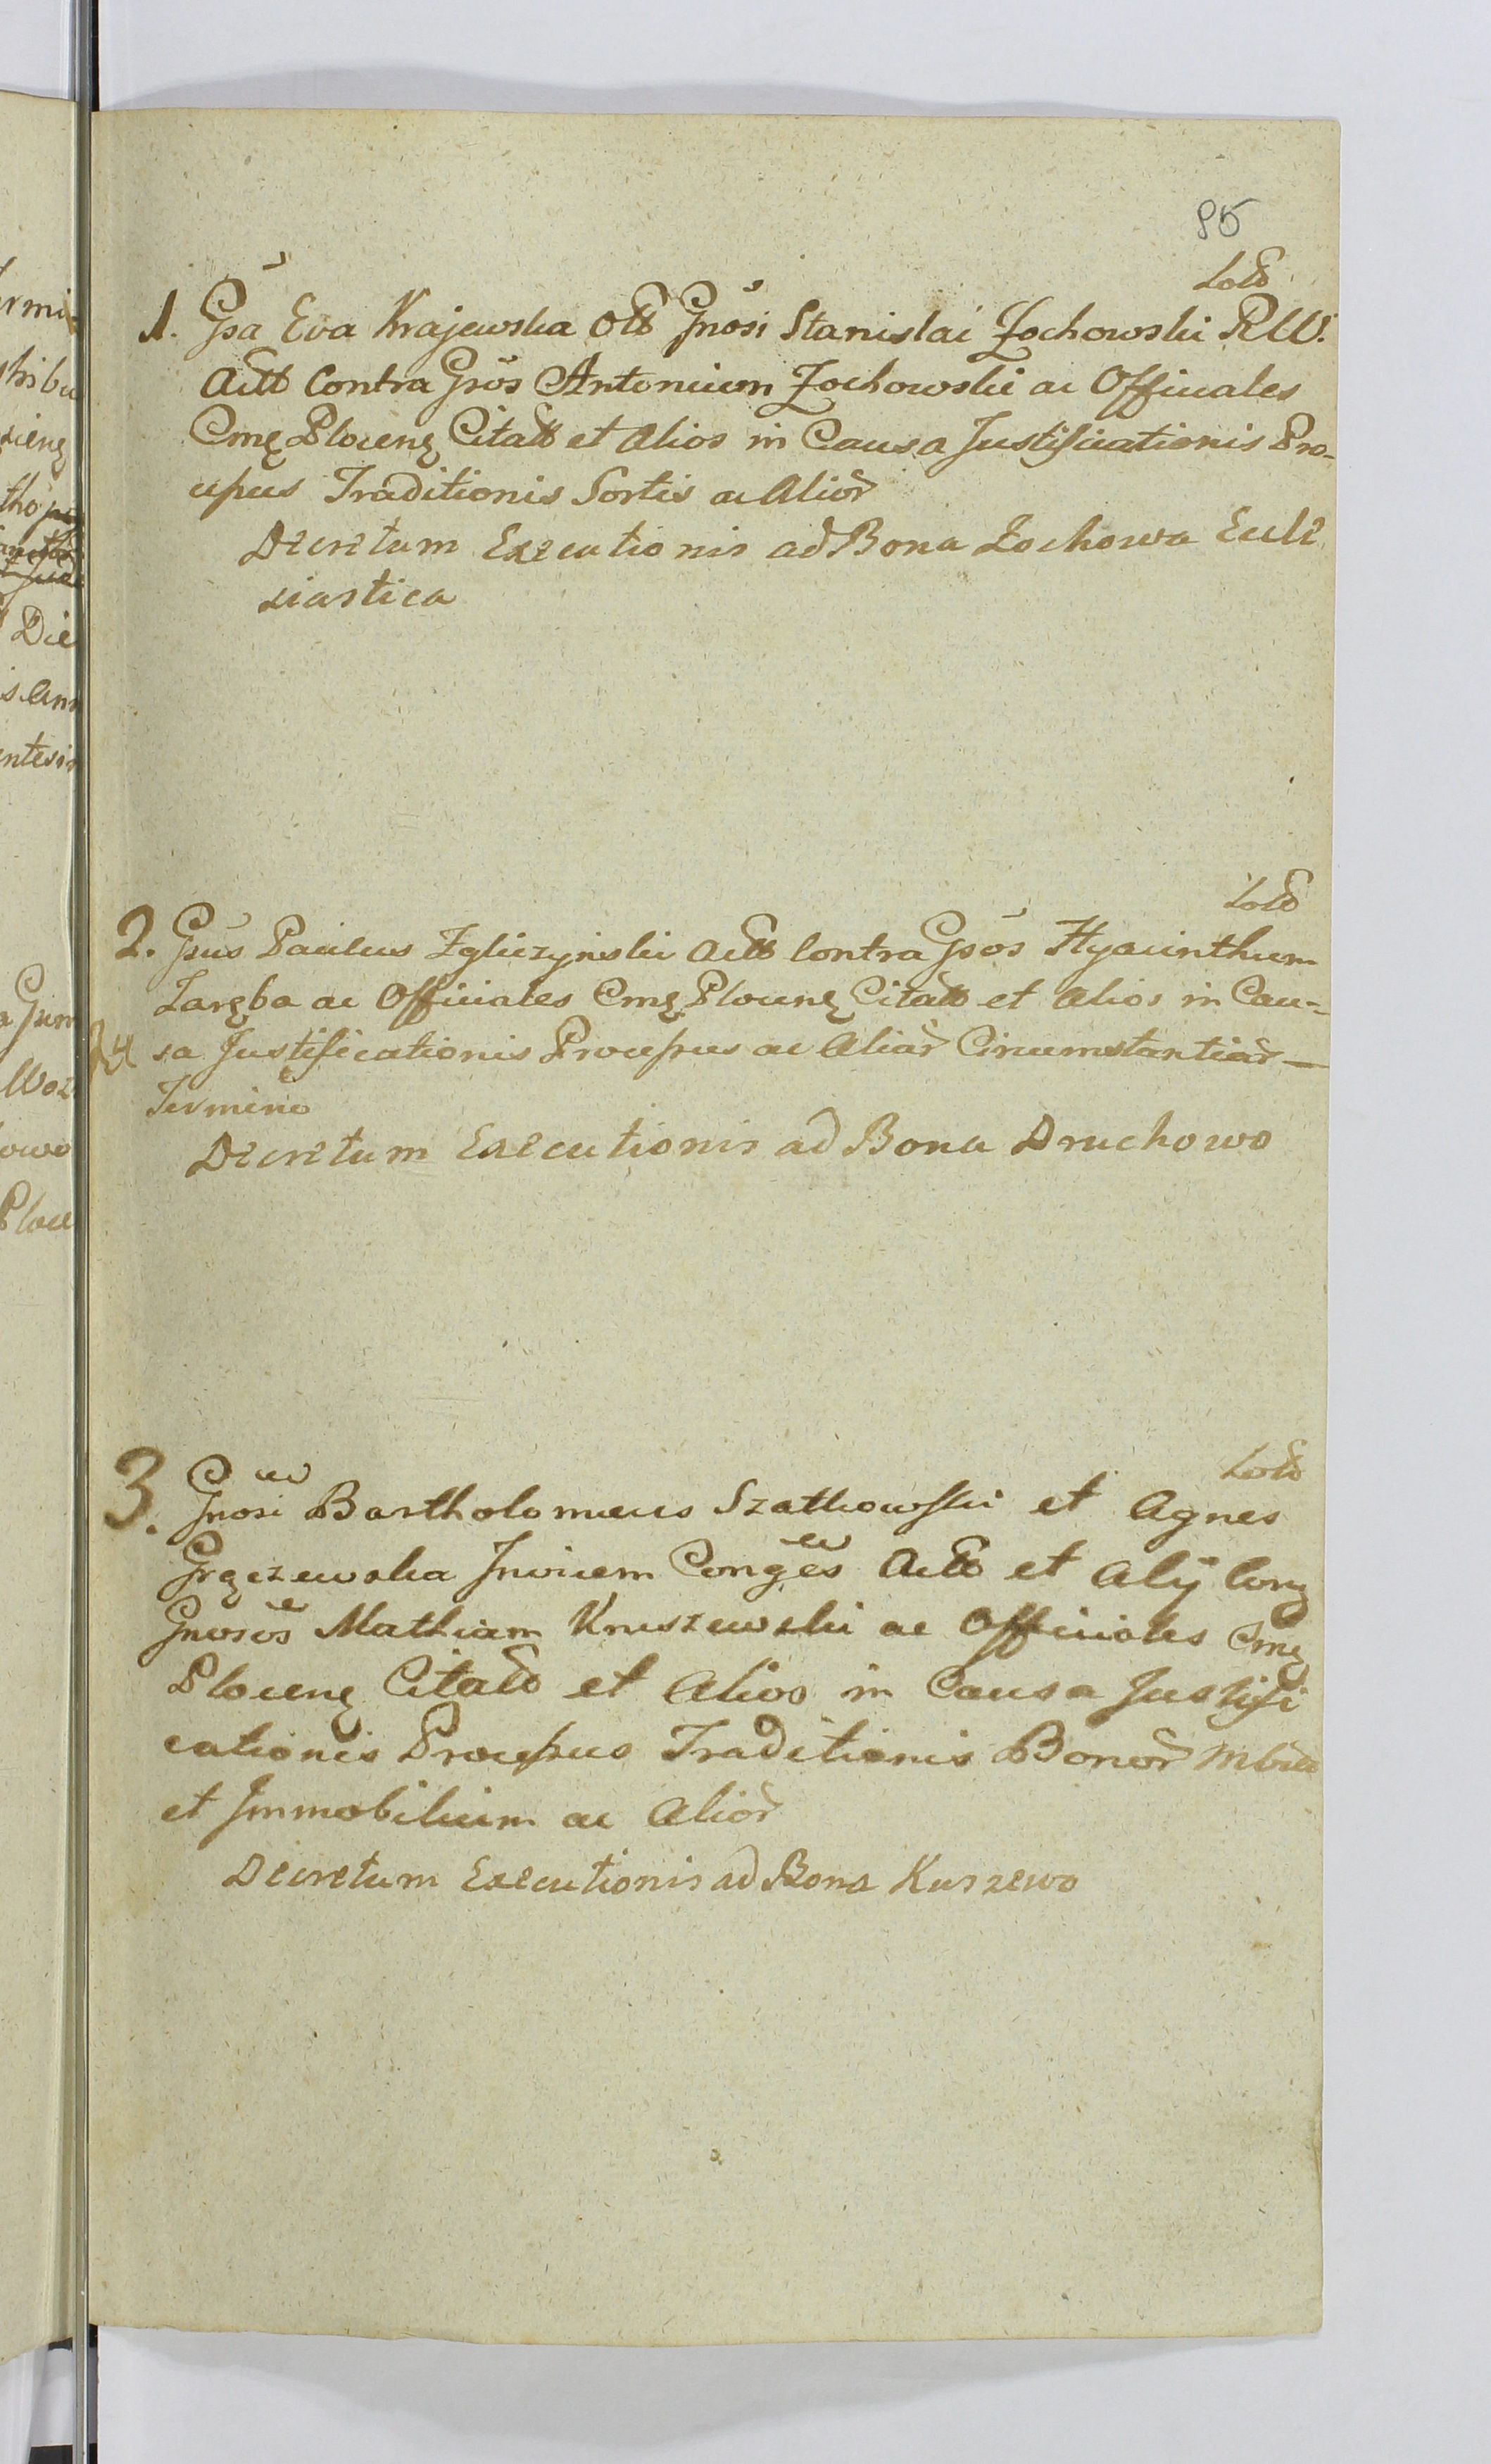 85
1. Gsa Eva Krajewska Ott Gnosi Stanislai Żochowski RW.
Actt Contra Gsos Antonium Żochowski ac Officiales
Cme Plocenę Citatt et Alios in Causa Justificationis Pro-
cessus Traditionis Sortis ac Alior
Decretum Executionis ad Bona Zochowa Eccle
siastica
2. Gsus Paulus Zgliczynski Actt Contra Gsos Hyacinthum
Zaręba ac Officiales Cmę Plocenę Citatt et Alios in Cau-
sa Justificationis Processus ac Aliar Circumstantiar
Termino
Decretum Executionis ad Bona Druchowo
3. Gnosi Bartholomeus Szatkowski et Agnes
Gręczewska Invicem Conges Actt et Alij Conę
Gnosos Mathiam Kruszewski ac Officiales Cmę
Plocenę Citatt et Alios in Causa Justifi
cationis Processus Traditionis Bonor
et Immobilium ac Alior
Decretum Executionis ad Bona Kuszewo